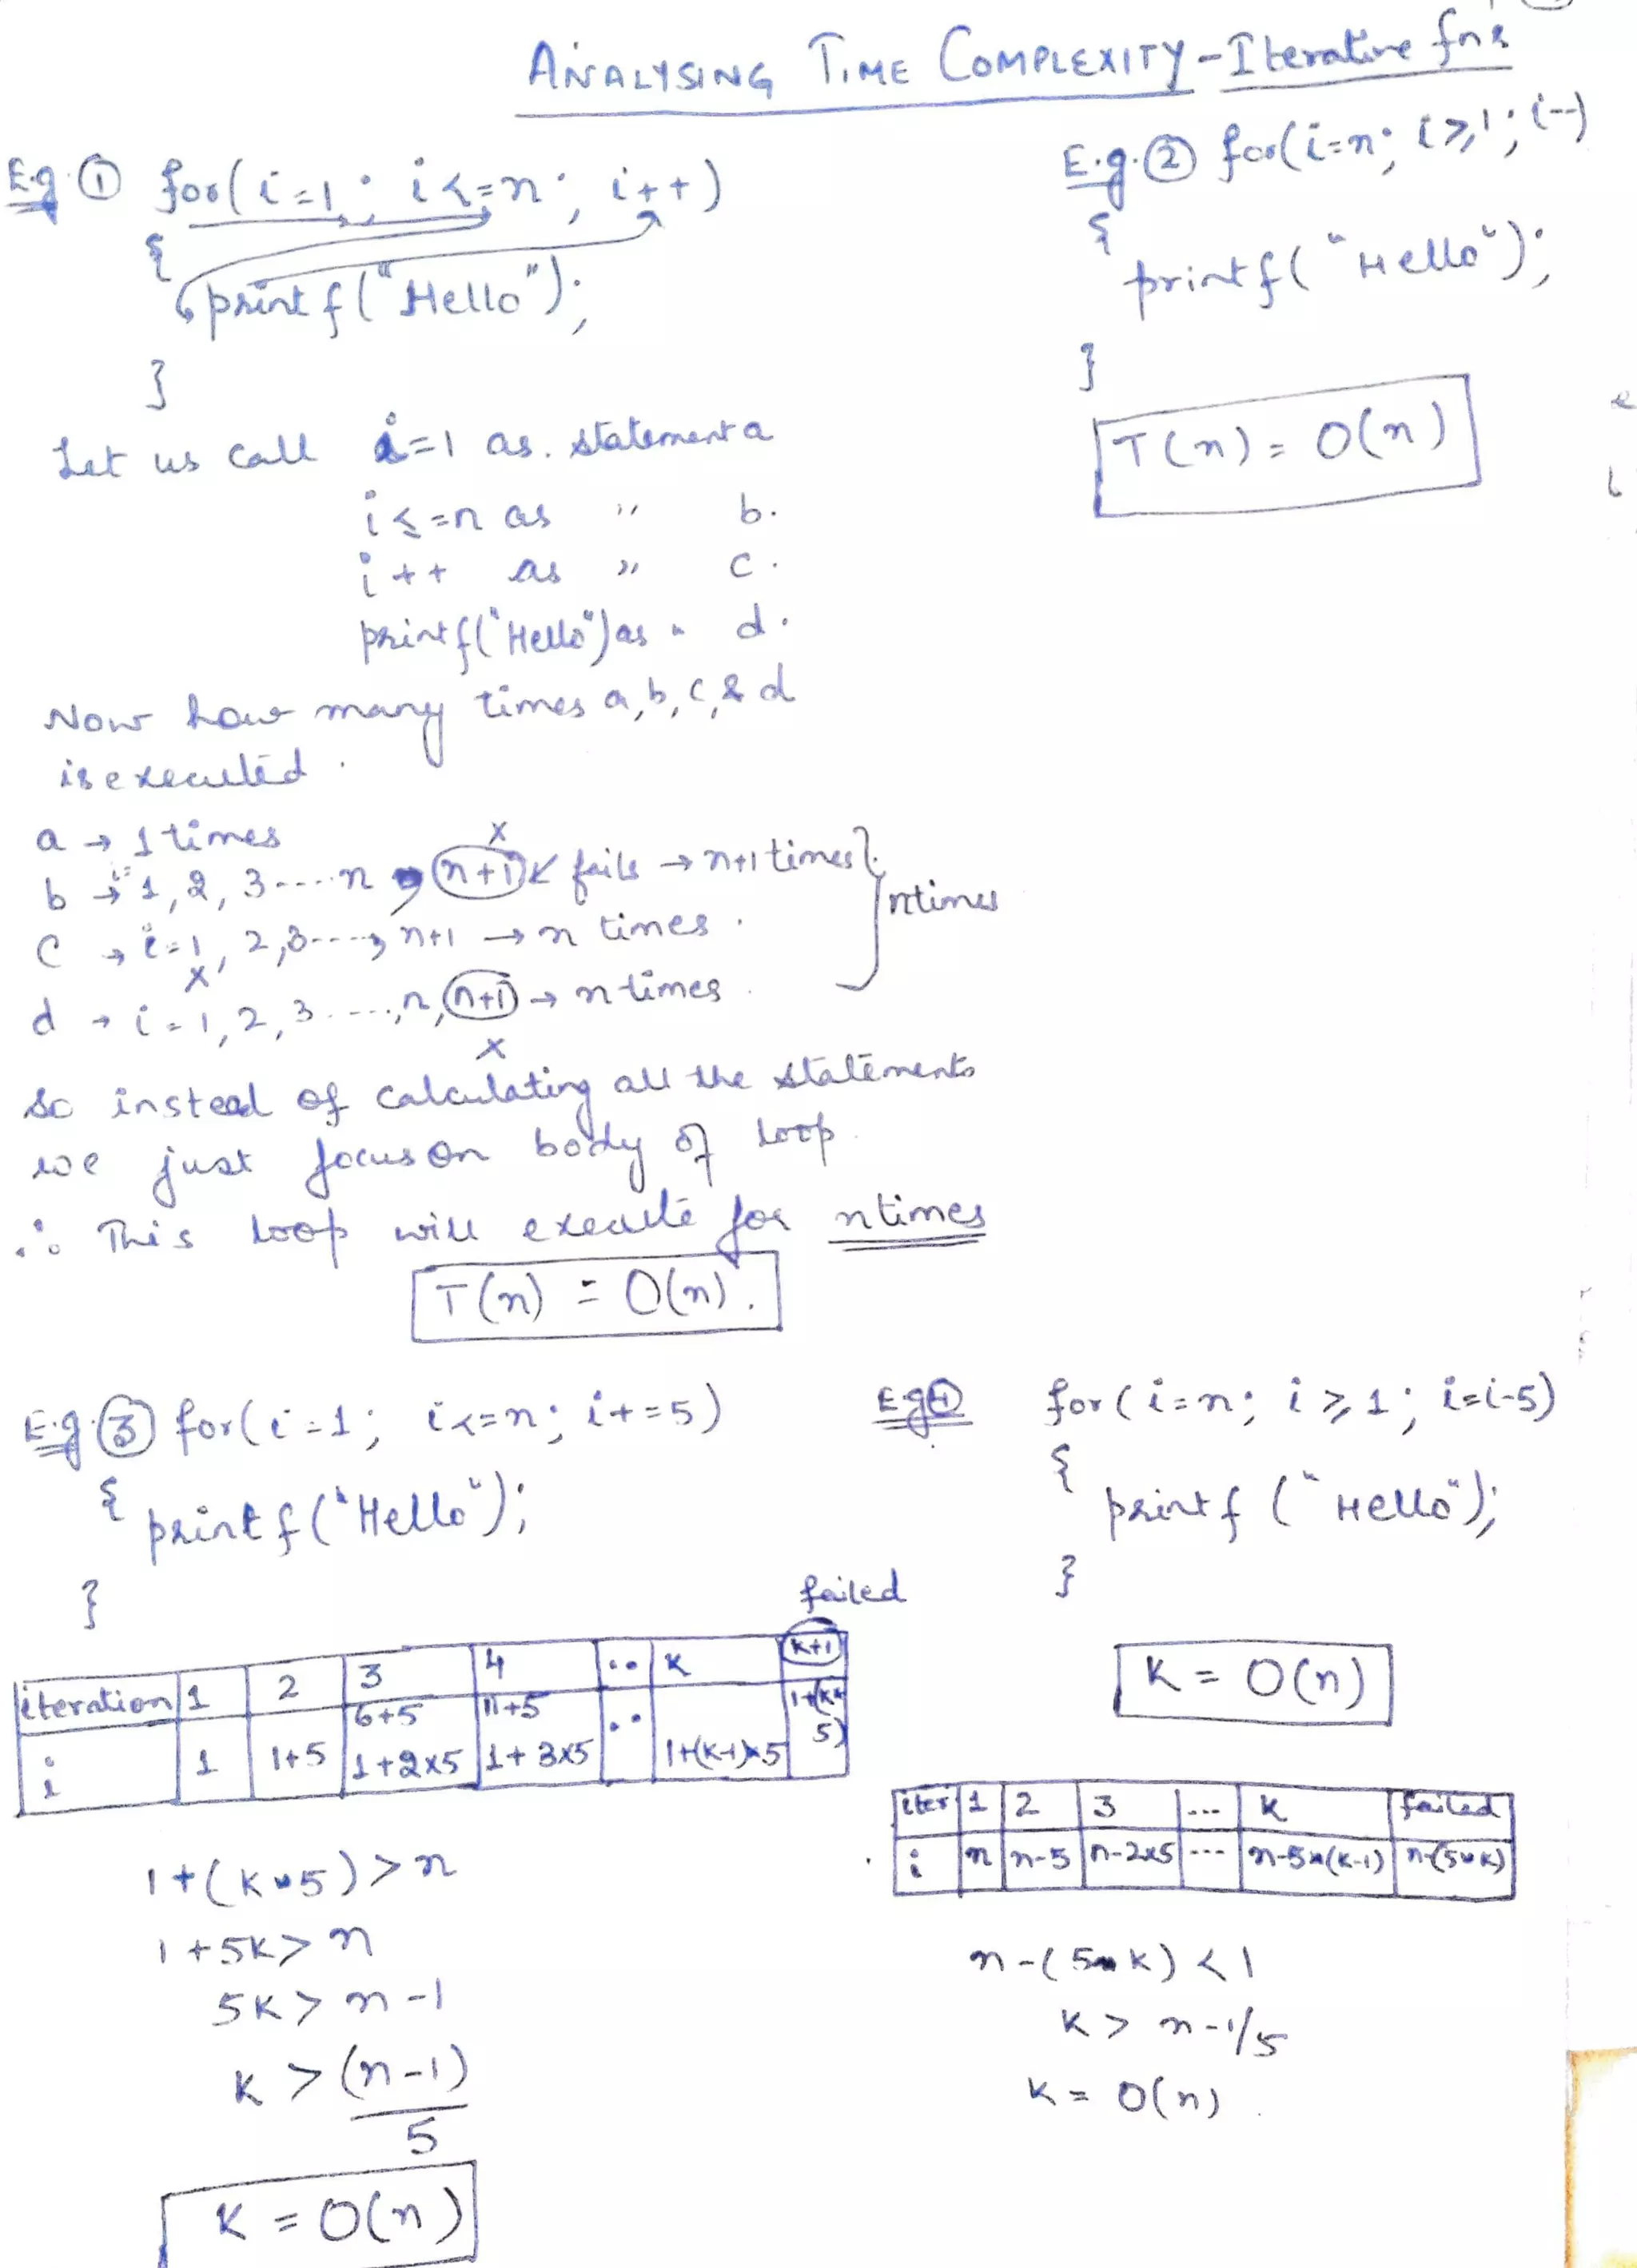 ANALYSING TIME COMPLEXITY - Iterative fns
E.g ① for(i=1; i<=n; i++)
{
printf("Hello");
}
Let us call i=1 as. statement a
i<=n as " b.
i++ as " c.
printf("Hello") as " d.
Now how many times a, b, c, & d
is executed.
a → 1 times
b → i= 1, 2, 3 .... n, n+1 x ↙ fails → n+1 times
c → i=1, 2, 3 ...., n+1 → n times.
x
d → i = 1, 2, 3 ....., n, n+1 → n times.
x
} n times
So instead of calculating all the statements
we just focus on body of loop.
∴ This loop will execute for n times
T(n) = O(n).
E.g. ② for(i=n; i≥1; i--)
{
printf("Hello");
}
T(n) = O(n)
E.g. ③ for(i=1; i<=n; i+=5)
{
printf("Hello");
}
failed
iteration 1 2 3 4 .. k k+1
6+5 11+5
i 1 1+5 1+2x5 1+3x5 .. 1+(k-1)*5 1+(k*5)
1+(k*5)>n
1+5k>n
5k>n-1
k > (n-1)
5
K = O(n)
E.g ④ for(i=n; i≥1; i=i-5)
{
printf("Hello");
}
K = O(n)
iter 1 2 3 ... k failed
i n n-5 n-2x5 ... n-5*(k-1) n-(5*k)
n-(5*k)<1
k > n-1/5
k = O(n).